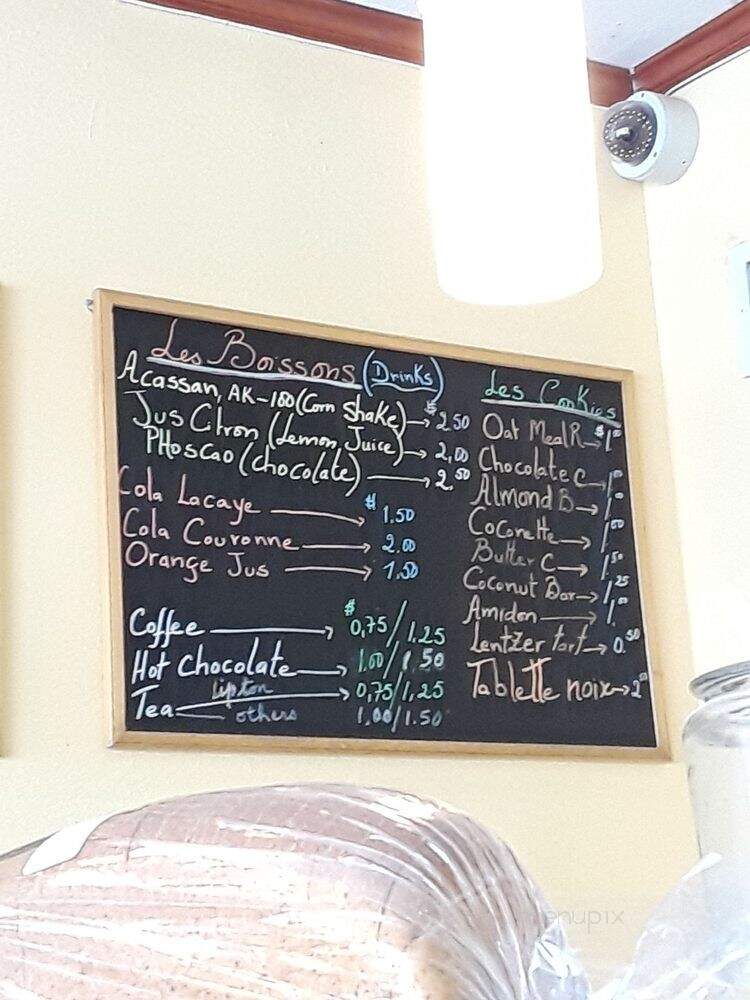 Les Boissons (Drinks)
Acassan, AK-100 (Corn Shake) → $2.50
Jus Citron (Lemon Juice) → 2,00
PHoscao (chocolate) → 2,50
Cola Lacaye → $1.50
Cola Couronne → 2.00
Orange Jus → 1,50
Coffee → $0,75/1.25
Hot chocolate → 1.00/1.50
Tea lipton → 0,75/1,25
others 1,00/1.50
Les Cookies
Oat Meal R → $1.00
Chocolate C → 1.00
Almond B → 1.00
Coconette → 1.00
Butter C → 1.50
Coconut Bar → 1.25
Amidon → 1.00
Lentzer tart → 0.50
Tablette noix → 2.00
menupix